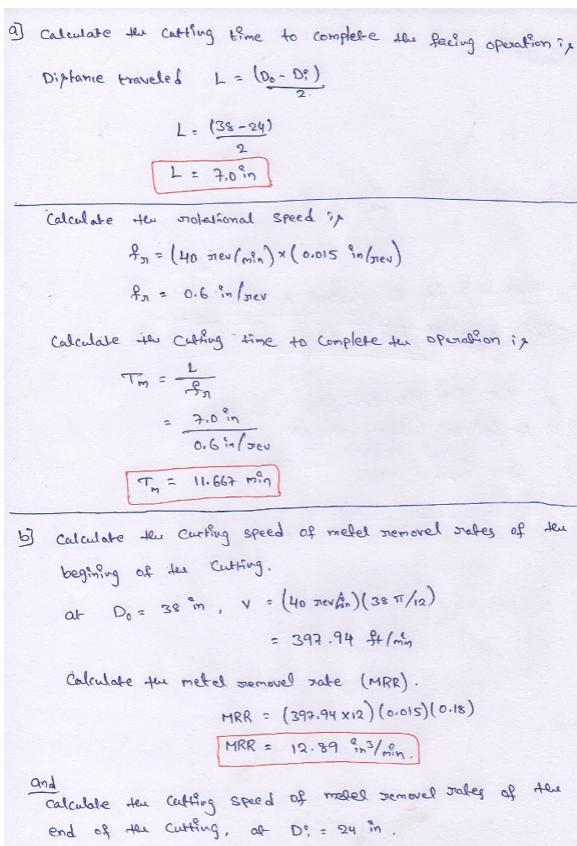 a] Calculate the Cutting time to Complete the facing operation is
Distance traveled L = (D₀ - Dᵢ)/2
L = (38 - 24)/2
L = 7.0 in
Calculate the rotational speed is
fᵣ = (40 rev/min) × (0.015 in/rev)
fᵣ = 0.6 in/rev
Calculate the Cutting time to Complete the operation is
Tₘ = L/fᵣ
= 7.0 in / 0.6 in/rev
Tₘ = 11.667 min
b] Calculate the Cutting speed of metal removel rates of the
begining of the Cutting.
at D₀ = 38 in, V = (40 rev/min)(38 π/12)
= 397.94 ft/min
Calculate the metel removel rate (MRR).
MRR = (397.94 x12)(0.015)(0.18)
MRR = 12.89 in³/min.
and
Calculate the Cutting speed of metel removel rates of the
end of the Cutting, at Dᵢ = 24 in.